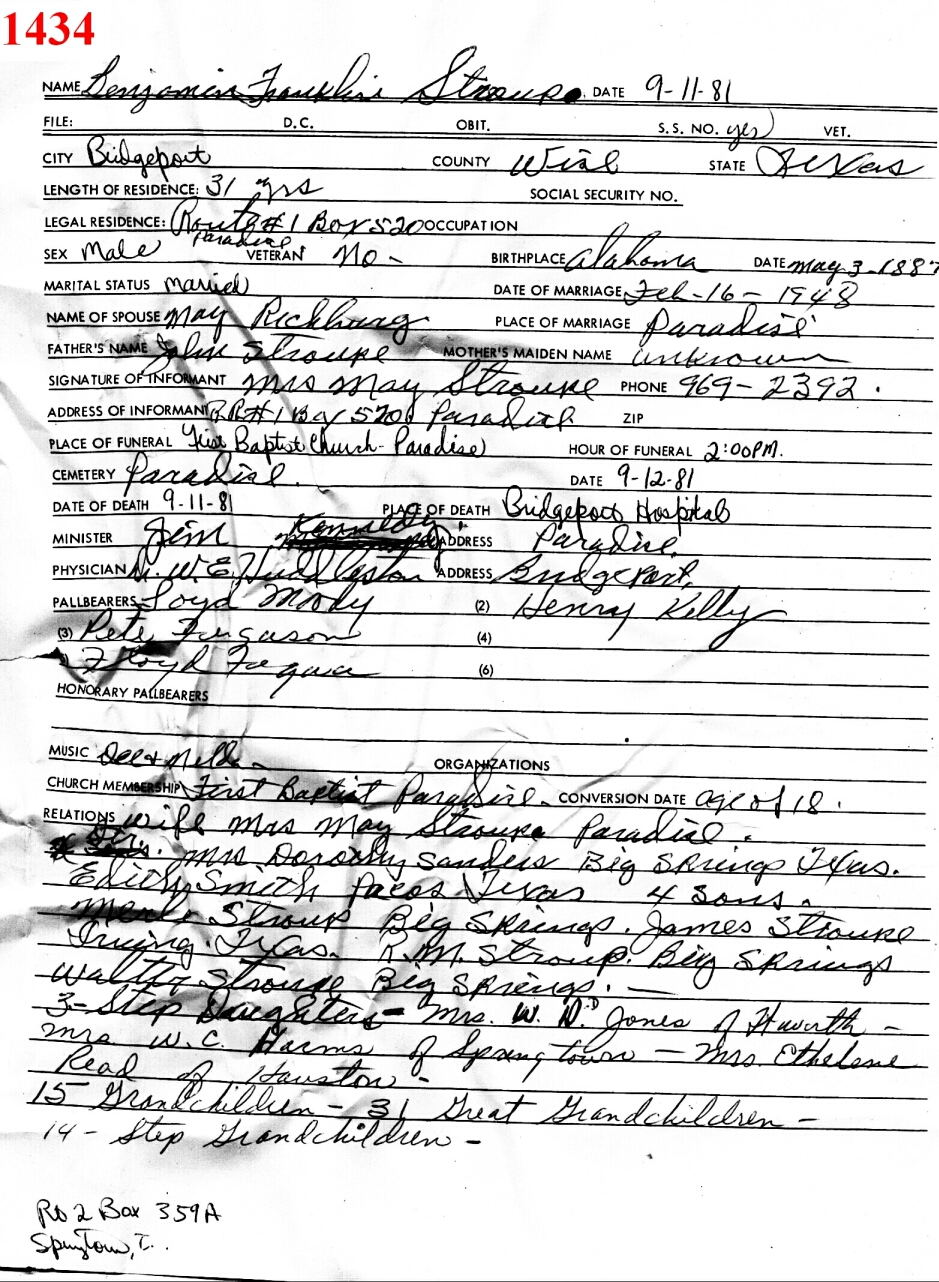 1434
NAME Benjamin Franklin Stroupe DATE 9-11-81
FILE: D.C. OBIT. S.S. NO. yes VET.
CITY Bridgeport COUNTY Wise STATE Texas
LENGTH OF RESIDENCE: 31 yrs SOCIAL SECURITY NO.
LEGAL RESIDENCE: Route #1 Box 520 OCCUPATION
Paradise
SEX Male VETERAN No - BIRTHPLACE Alabama DATE May 3-1887
MARITAL STATUS Married DATE OF MARRIAGE Feb-16-1948
NAME OF SPOUSE May Rickburg PLACE OF MARRIAGE Paradise
FATHER'S NAME John Stroupe MOTHER'S MAIDEN NAME unknown
SIGNATURE OF INFORMANT Mrs May Stroupe PHONE 969-2392.
ADDRESS OF INFORMANT RR#1 Box 520 Paradise ZIP
PLACE OF FUNERAL First Baptist Church-Paradise HOUR OF FUNERAL 2:00PM.
CEMETERY Paradise. DATE 9-12-81
DATE OF DEATH 9-11-81 PLACE OF DEATH Bridgeport Hospital
MINISTER Jim Kennedy ADDRESS Paradise
PHYSICIAN W.E. Huddleston ADDRESS Bridgeport.
PALLBEARERS Loyd Moody (2) Henry Kelly
(3) Pete Furgason (4)
Floyd Fuqua (6)
HONORARY PALLBEARERS
MUSIC ORGANIZATIONS
CHURCH MEMBERSHIP First Baptist Paradise. CONVERSION DATE age of 18.
RELATIONS wife Mrs May Stroupe Paradise.
Mrs Dorothy Sanders Big Springs Texas.
Edith Smith Pacos Texas 4 sons.
Merle Stroup Big Springs. James Stroupe
Irving. Texas. R.M. Stroup. Big Springs
Walter Stroupe Big Springs. —
3-Step Daughters- Mrs. W. D. Jones of Haworth -
Mrs W.C. Harms of Springtown - Mrs. Ethelene
Read of Houston -
15 Grandchildren - 31 Great Grandchildren -
14 - Step Grandchildren -
Rt 2 Box 359A
Springtown, T.